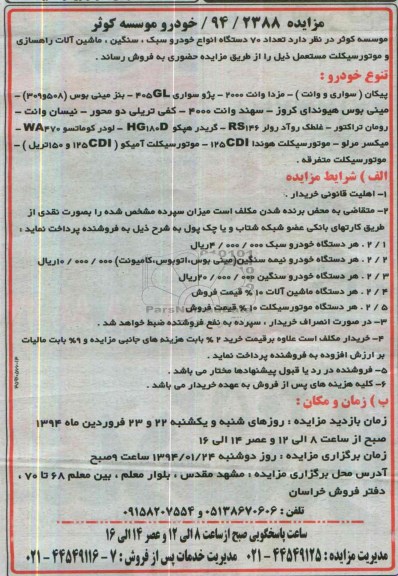 مزایده ۲۳۸۸ / ۹۴ / خودرو موسسه کوثر
موسسه کوثر در نظر دارد تعداد ۷۰ دستگاه انواع خودرو سبک ، سنگین ، ماشین آلات راهسازی
و موتورسیکلت مستعمل ذیل را از طریق مزایده حضوری به فروش رساند .
تنوع خودرو :
پیکان ( سواری و وانت ) - مزدا وانت ۲۰۰۰ - پژو سواری ۴۰۵GL - بنز مینی بوس (۵۰۸و۳۰۹) -
مینی بوس هیوندای کروز - سهند وانت ۴۰۰۰ - کفی تریلی دو محور - نیسان وانت -
رومان تراکتور - غلطک روآد رولر RS۱۴۶ - گریدر هپکو HG۱۸۰D - لودر کوماتسو WA۴۷۰ -
میکسر مرلو - موتورسیکلت هوندا ۱۲۵CDI - موتورسیکلت آمیکو ( ۱۲۵CDI و ۱۵۰تریل ) -
موتورسیکلت متفرقه .
الف ) شرایط مزایده
۱- اهلیت قانونی خریدار .
۲- متقاضی به محض برنده شدن مکلف است میزان سپرده مشخص شده را بصورت نقدی از
طریق کارتهای بانکی عضو شبکه شتاب و یا چک پول به شرح ذیل به فروشنده پرداخت نماید :
۲/۱ . هر دستگاه خودرو سبک ۴/۰۰۰/۰۰۰ریال
۲/۲ . هر دستگاه خودرو نیمه سنگین(مینی بوس،اتوبوس،کامیونت) ۱۰/۰۰۰/۰۰۰ریال
۲/۳ . هر دستگاه خودرو سنگین ۲۰/۰۰۰/۰۰۰ریال
۲/۴ . هر دستگاه ماشین آلات ۱۰ % قیمت فروش
۲/۵ . هر دستگاه موتورسیکلت ۱۰ % قیمت فروش
۳- در صورت انصراف خریدار ، سپرده به نفع فروشنده ضبط خواهد شد .
۴- خریدار مکلف است علاوه برقیمت خرید ۲ % بابت هزینه های جانبی مزایده و ۹% بابت مالیات
بر ارزش افزوده به فروشنده پرداخت نماید .
۵- فروشنده در رد یا قبول پیشنهادها مختار می باشد .
۶- کلیه هزینه های پس از فروش به عهده خریدار می باشد .
ب ) زمان و مکان :
زمان بازدید مزایده : روزهای شنبه و یکشنبه ۲۲ و ۲۳ فروردین ماه ۱۳۹۴
صبح از ساعت ۸ الی ۱۲ و عصر ۱۴ الی ۱۶
زمان برگزاری مزایده : روز دوشنبه ۱۳۹۴/۰۱/۲۴ ساعت ۹صبح
آدرس محل برگزاری مزایده : مشهد مقدس ، بلوار معلم ، بین معلم ۶۸ تا ۷۰ ،
دفتر فروش خراسان
تلفن : ۰۵۱۳۸۶۷۰۶۰۶ و ۰۹۱۵۸۲۰۷۵۵۴
ساعت پاسخگویی صبح ازساعت ۸ الی ۱۲ و عصر ۱۴ الی ۱۶
مدیریت مزایده : ۴۴۵۴۹۱۲۵ - ۰۲۱ مدیریت خدمات پس از فروش : ۷ - ۴۴۵۴۹۱۱۶ - ۰۲۱